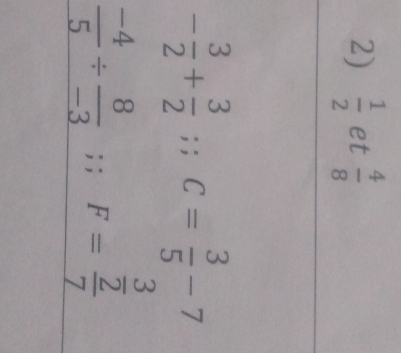 2) 1/2 et 4/8
-3/2 + 3/2 ;; C = 3/5 - 7
-4/5 ÷ 8/-3 ;; F = 3/2/7